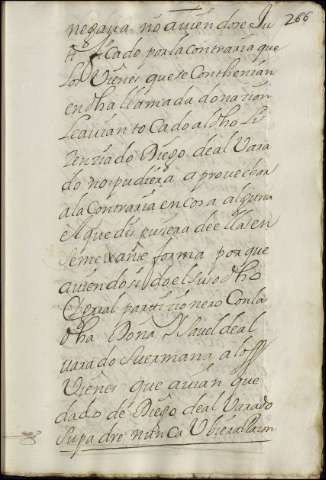 266
negaua. no auiendo se Ju
Acado por la contraria que
los Vienes que se Conthenian
en dha llamada donazion
le auian to Cado al dho Li
zenziado Diego de al Vara
do no pudiera a prouechar
a la Contraria en cosa alguna
el que dis pusiera de ellas en
semexante forma porque
auiendo sido el suso dho
partizionero Con la
dha Doña Ysauel de al
uarado su ermana a los
Vienes que auian que
dado de Diego de al Varado
su padre nunca Vbiera